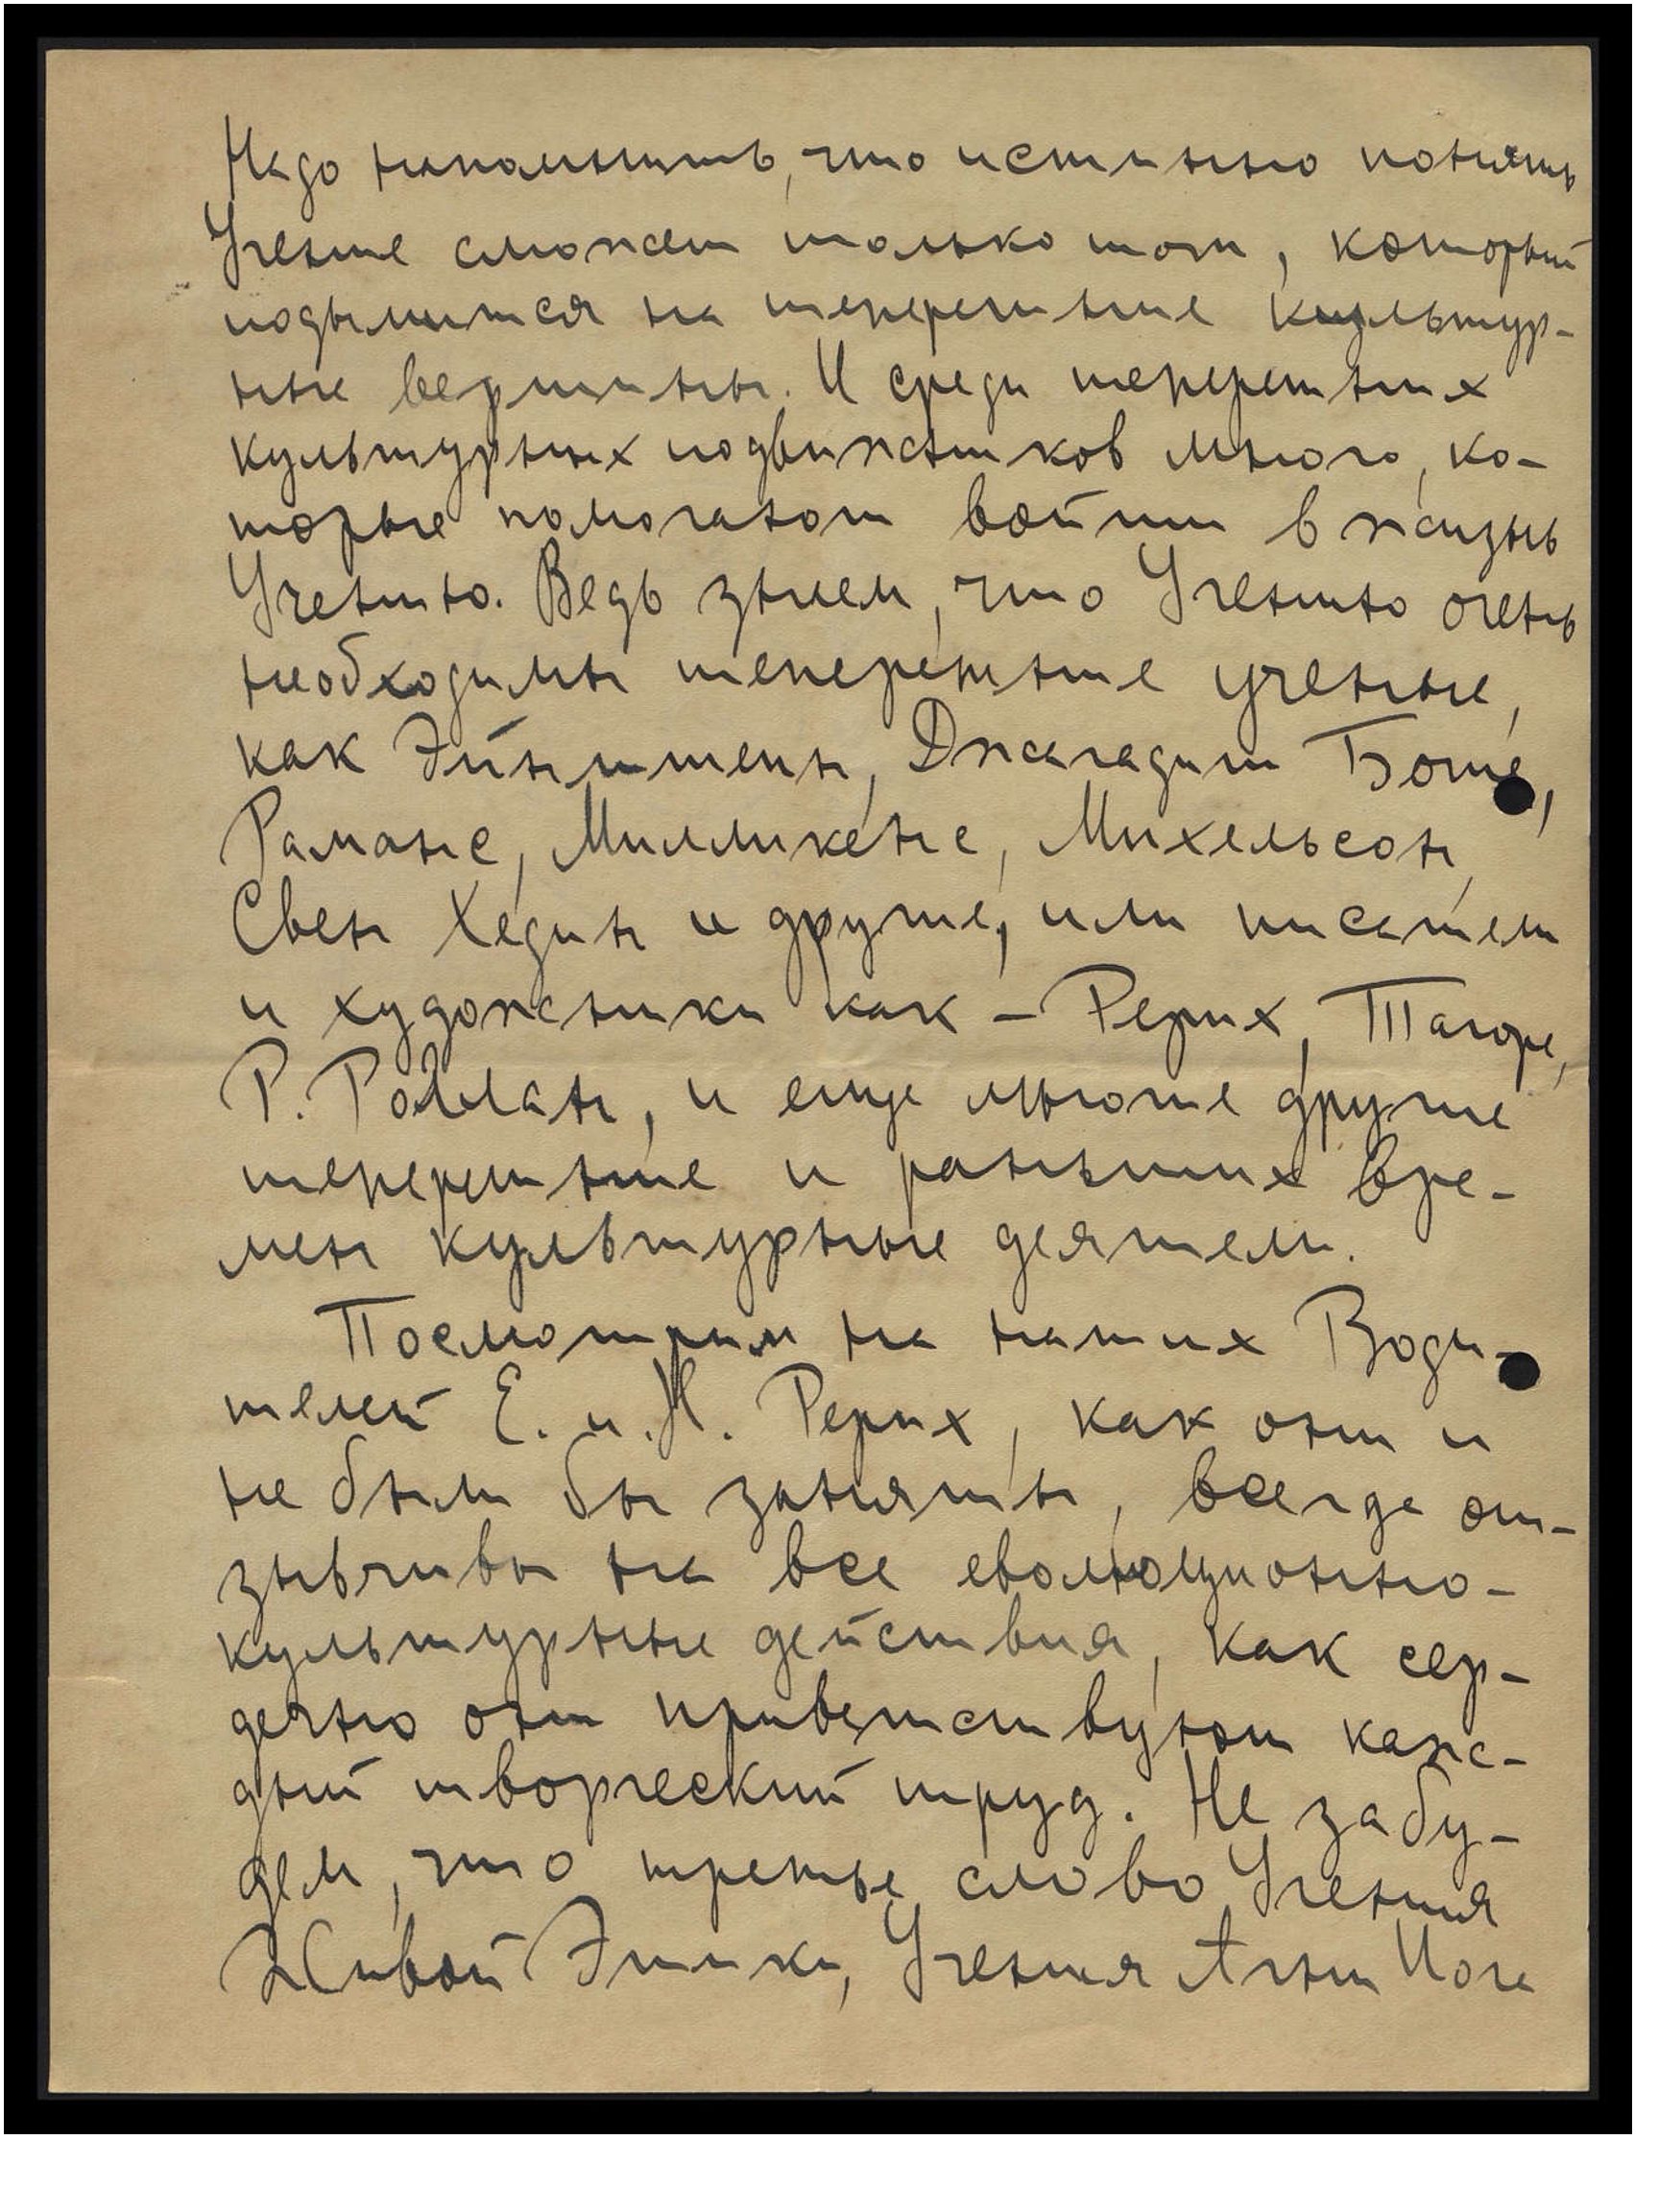 Надо напомнить, что истинно понять
Учение сможет только тот, который
подымится на теперешние культур-
ные вершины. И среди теперешних
культурных подвижников много, ко-
торые помогают войти в жизнь
Учению. Ведь знаем, что Учению очень
необходимы теперешние ученые,
как Эйнштейн, Джагадиш Боше,
Раманс, Милликенс, Михельсон,
Свен Хедин и другие, или писатели
и художники как – Рерих, Тагоре,
Р. Роллан, и еще многие другие
теперешние и раньших вре-
мен культурные деятели.
Посмотрим на наших Води-
телей Е. и Н. Рерих, как они и
не были бы заняты, всегда от-
зывчивы на все еволюционно-
культурные действия, как сер-
дечно они приветствуют каж-
дый творческий труд. Не забу-
дем, что третье слово Учения
Живой Этики, Учения Агни Йога